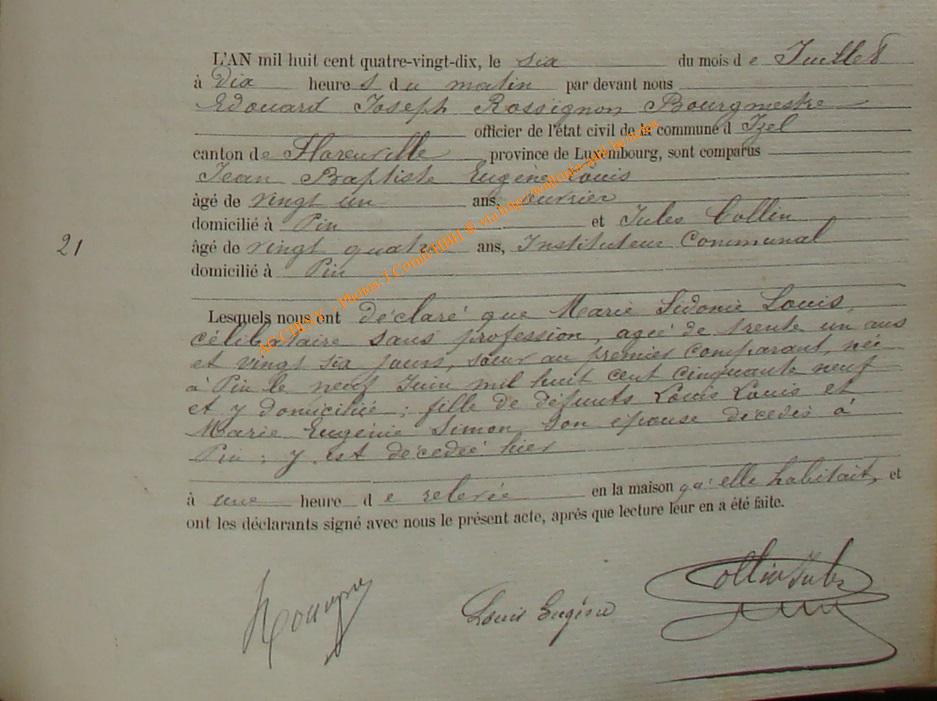 L'AN mil huit cent quatre-vingt-dix, le six du mois de Juillet
à dix heures du matin par devant nous
Edouard Joseph Rossignon Bourgmestre
officier de l'état civil de la commune d Izel
canton de Florenville province de Luxembourg, sont comparus
Jean Baptiste Eugène Louis
âgé de vingt un ans, ouvrier
domicilié à Pin et Jules Collin
21
âgé de vingt quatre ans, Instituteur Communal
domicilié à Pin
Lesquels nous ont déclaré que Marie Sidonie Louis,
célibataire sans profession, agée de trente un ans
et vingt six jours, sœur au premier comparant, née
à Pin le neuf Juin mil huit cent cinquante neuf
et y domiciliée ; fille de défunts Louis Louis et
Marie Eugénie Simon, son épouse décédés à
Pin ; y est décedée hier
à une heure de relevée en la maison qu'elle habitait, et
ont les déclarants signé avec nous le présent acte, après que lecture leur en a été faite.
Louis Eugène
Collin Jules